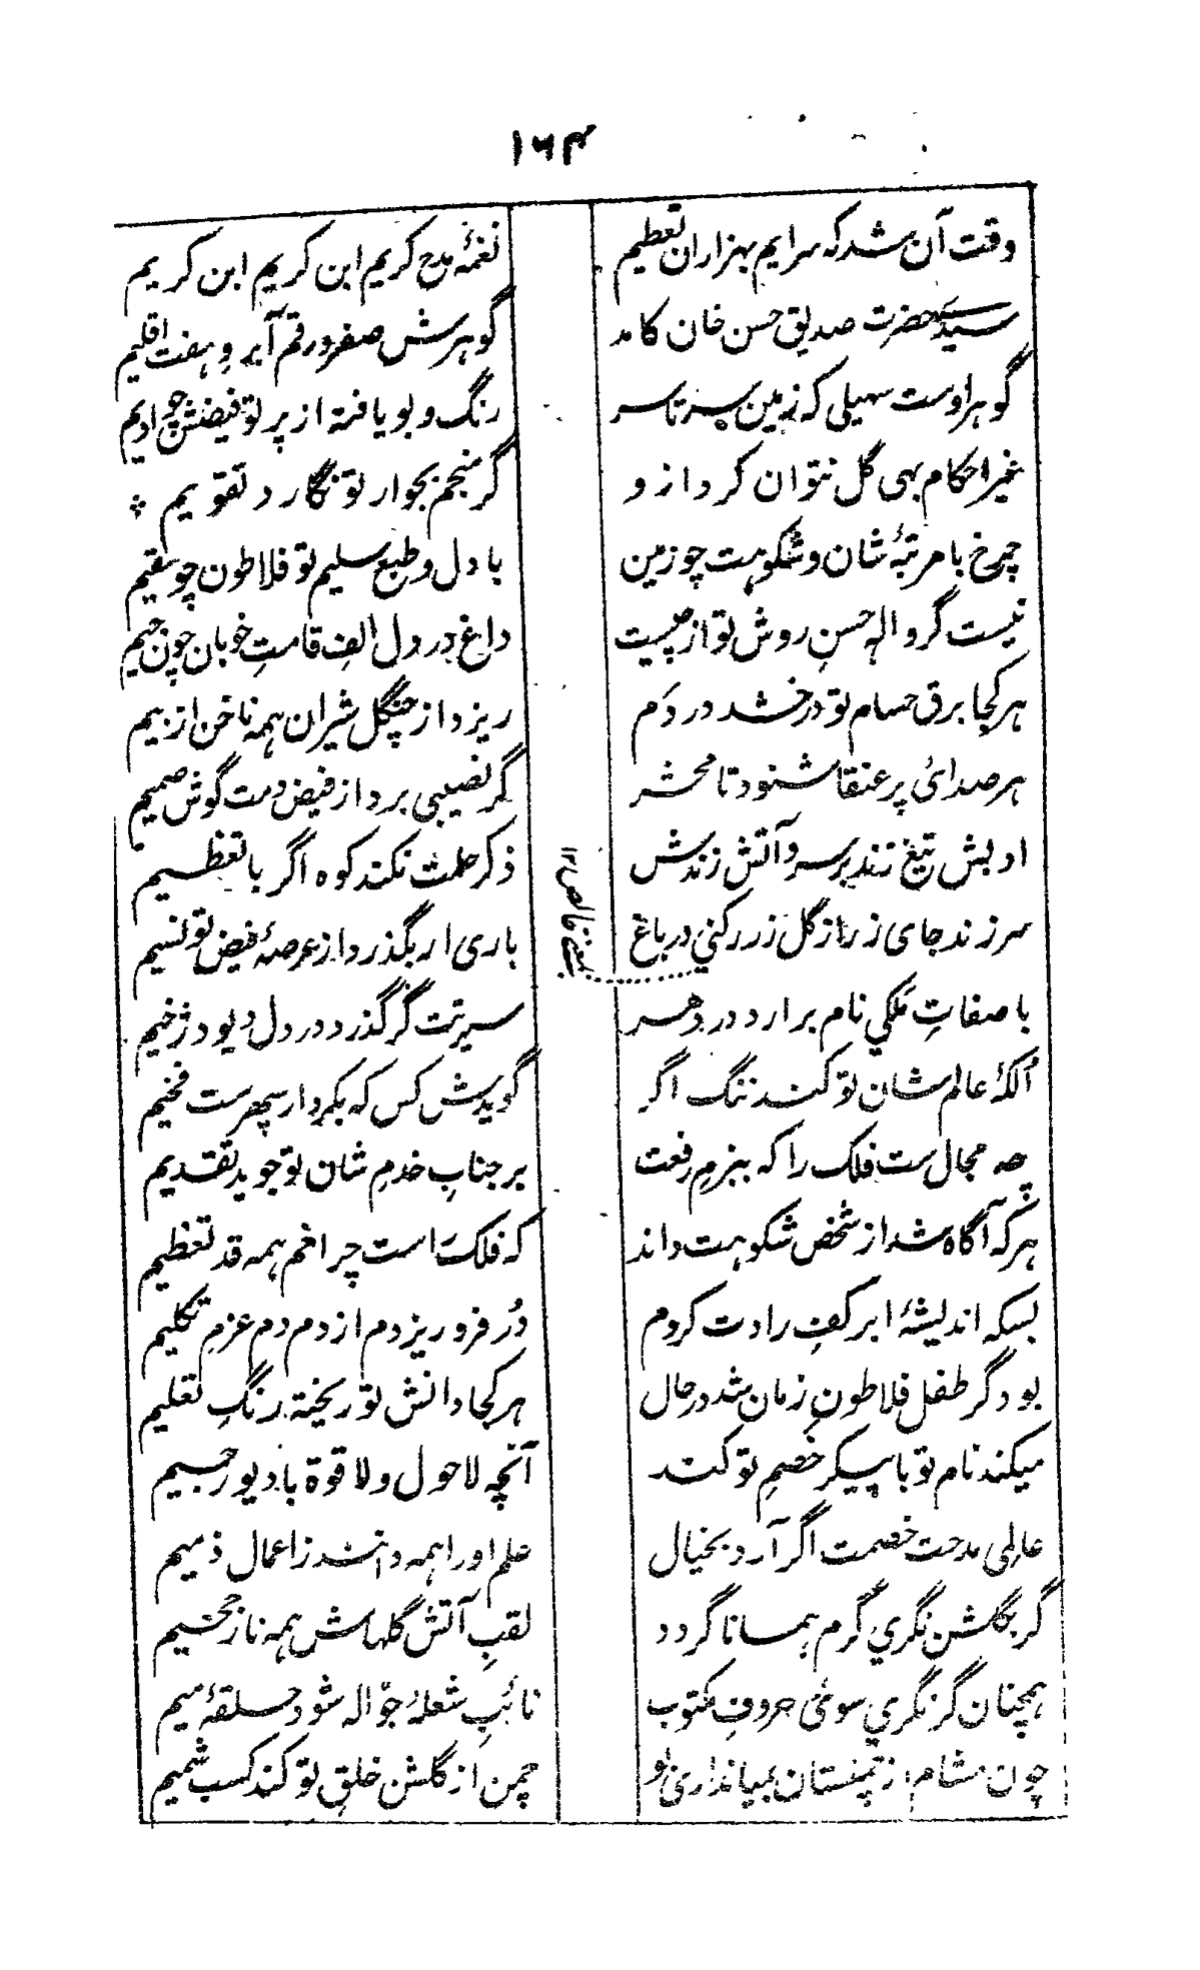 ۱۶۴
وقت آن شد که سرایم بهزاران تعظیم
نغمهٔ مدح کریم ابن کریم ابن کریم
سید حضرت صدیق حسن خان کامد
گوهرش صفر و رقم آمد و هفت اقلیم
گوهر اوست سهیلی که زمین سر تا سر
رنگ و بو یافته از پرتو فیضش چو ادیم
غیر احکام بهی گل نتوان کرد ازو
گر منجم بجوار تو نگارد تقویم
چرخ با مرتبهٔ شان و شکوهت چو زمین
با دل و طبع سلیم تو فلاطون چو سقیم
نیست گر والهِ حسنِ روش تو از چیست
داغ در دل الفِ قامتِ خوبان چون جیم
هر کجا برق حسام تو درخشد در دَم
ریزد از چنگل شیران همه ناخن از بیم
هر صدائی پر عنقا شنود تا محشر
گر نصیبی برد از فیض دمت گوش صمیم
ادبش تیغ تند بر سر و آتش زندش
ذکر حلمت نکند کوه اگر با تعظیم
سر زند جای زر از گل زر رکنی در باغ
باری ار بگذرد از عرصهٔ فیض تو نسیم
یعنے خالص ۱۲
با صفاتِ مَلکی نام برارد در دهر
سیرتت گر گذرد در دل دیو دژخیم
اُلکهٔ عالم شان تو کند ننگ اگر
گویدش کس که بکردار سپهرست فخیم
چه مجال ست فلک را که ببزمِ رفعت
بر جنابِ خدمِ شان تو جوید تقدیم
هر که آگاه شد از شخص شکوهت داند
که فلک راست چرا خم همه قد تعظیم
بسکه اندیشهٔ ابر کفِ رادت کردم
دُر فرو ریزدم از دم دمِ عزمِ تکلیم
بود گر طفل فلاطونِ زمان شد در حال
هر کجا دانش تو ریخته رنگِ تعلیم
میکند نام تو با پیکر خصمِ تو کند
آنچه لا حول و لا قوة با دیو رجیم
عالمِی مدحت خصمت اگر آرد بخیال
علم او را همه دانند ز اعمال ذمیم
گر بگلشن نگری گرم همانا گردد
لقبِ آتش گلهاش همه نار جحیم
همچنان گر نگری سوئی حروفِ مکتوب
نائبِ شعلهٔ جوّاله شود حلقهٔ میم
چون مشام از چمنستان بمیانداری تو
چمن از گلشن خلقِ تو کند کسب شمیم